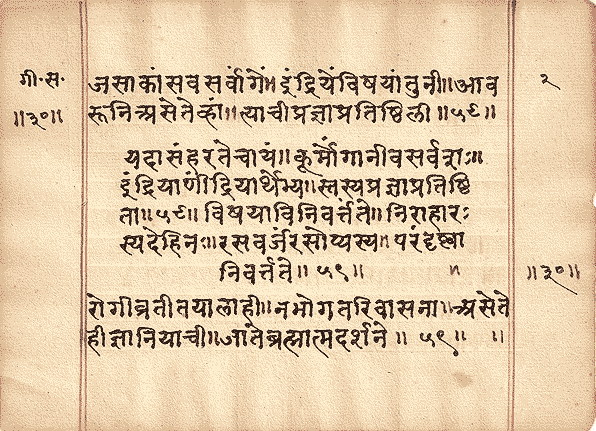 गी. स. जसा कांसव सर्वांगें॥ इंद्रियें विषयांतुनी॥ आव २
रूनि असे तेव्हां॥ त्याची प्रज्ञा प्रतिष्ठिली॥५८॥
॥३०॥
यदा संहरते चायं॥ कूर्मोंगानीव सर्वशः॥
इंद्रियाणींद्रियार्थेभ्य॥ स्तस्य प्रज्ञा प्रतिष्ठि
ता॥५८॥ विषया विनिवर्त्तंते॥ निराहार
स्य देहिनः॥ रसवर्जं रसोप्यस्य॥ परं दृष्ट्वा
निवर्त्तते॥५९॥ ॥ ॥३०॥
रोगी व्रती तयालाही॥ न भोग तरि वासना॥ असे ते
ही ज्ञानियाची॥ जाते ब्रह्मात्मदर्शने॥५९॥ ॥